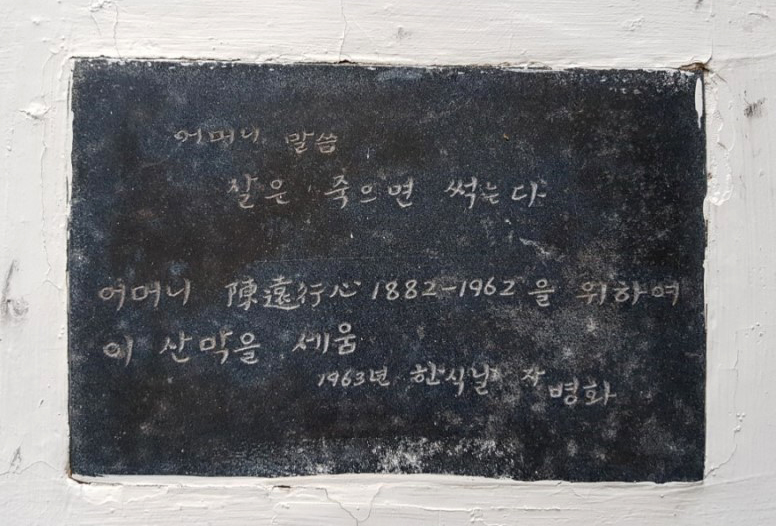 어머니 말씀
살은 죽으면 썩는다
어머니 陳遠行心 1882-1962 을 위하여
이 산막을 세움
1963년 한식날 자
병화